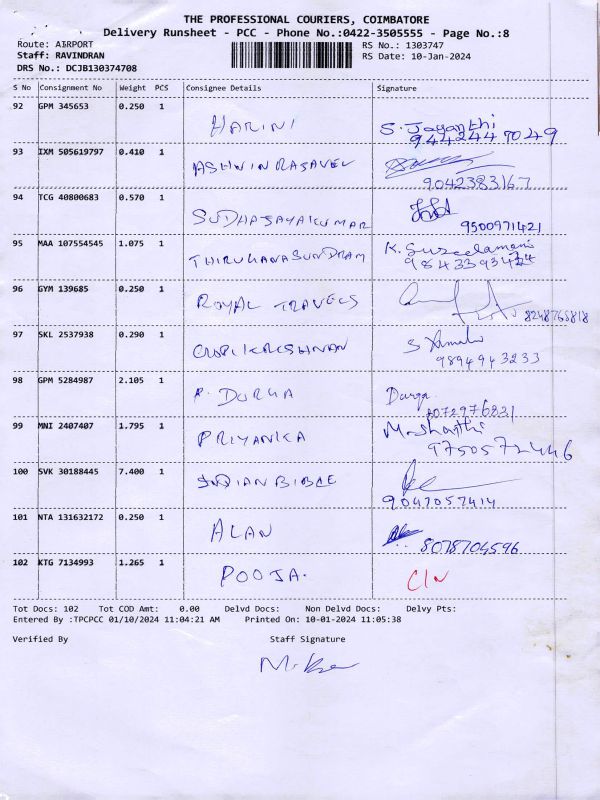 THE PROFESSIONAL COURIERS, COIMBATORE
Delivery Runsheet - PCC - Phone No.:0422-3505555 - Page No.:8
Route: AIRPORT RS No.: 1303747
Staff: RAVINDRAN RS Date: 10-Jan-2024
DRS No.: DCJB130374708
S No Consignment No Weight PCS Consignee Details Signature
92 GPM 345653 0.250 1
HARINI S. Jayanthi
9442447049
93 IXM 505619797 0.410 1
ASHWIN RASAVEL
9042383167
94 TCG 40800683 0.570 1
SUDHAJAYAKUMAR
9500971421
95 MAA 107554545 1.075 1
THIRUGNASUNDRAM K. Suseelamani
96 GYM 139685 0.250 1
ROYAL TRAVELS
8248768818
97 SKL 2537938 0.290 1
GOPIKRISHNAN
9894943233
98 GPM 5284987 2.105 1
P. DURGA Durga
8072976831
99 MNI 2407407 1.795 1
PRIYANKA M. Shanthi
9750572446
100 SVK 30188445 7.400 1
INDIAN BIBLE
9047057414
101 NTA 131632172 0.250 1
ALAN
8078704596
102 KTG 7134993 1.265 1
POOJA. C/N
Tot Docs: 102 Tot COD Amt: 0.00 Delvd Docs: Non Delvd Docs: Delvy Pts:
Entered By :TPCPCC 01/10/2024 11:04:21 AM Printed On: 10-01-2024 11:05:38
Verified By Staff Signature